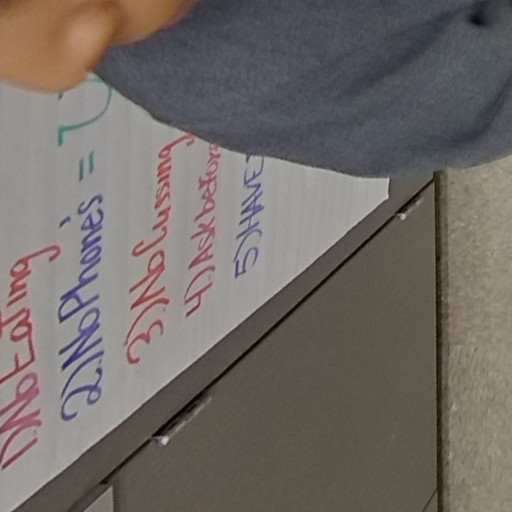 1) No Eating
2.) No Phone's =
3.) No Cussing
4.) Ask before
5.) HAVE